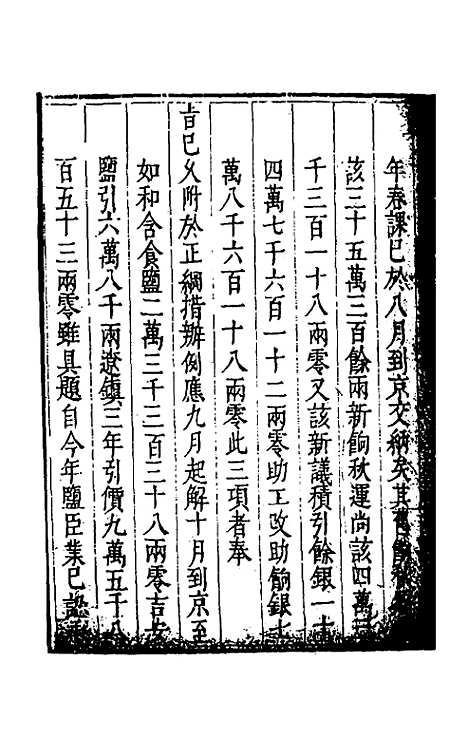 年春課已於八月到京交納矣其舊餉
該三十五萬三百餘兩新餉秋運尚該四萬
千三百一十八兩零又該新議積引餘銀一十
四萬七千六百一十二兩零助工改助餉銀七
萬八千六百一十八兩零此三項者奉
旨已久附於正綱措辦例應九月起解十月到京至
如和含食鹽二萬三千三百三十八兩零吉安
鹽引六萬八千兩遼鎮三年引價九萬五千八
百五十三兩零雖具題自今年鹽臣業已